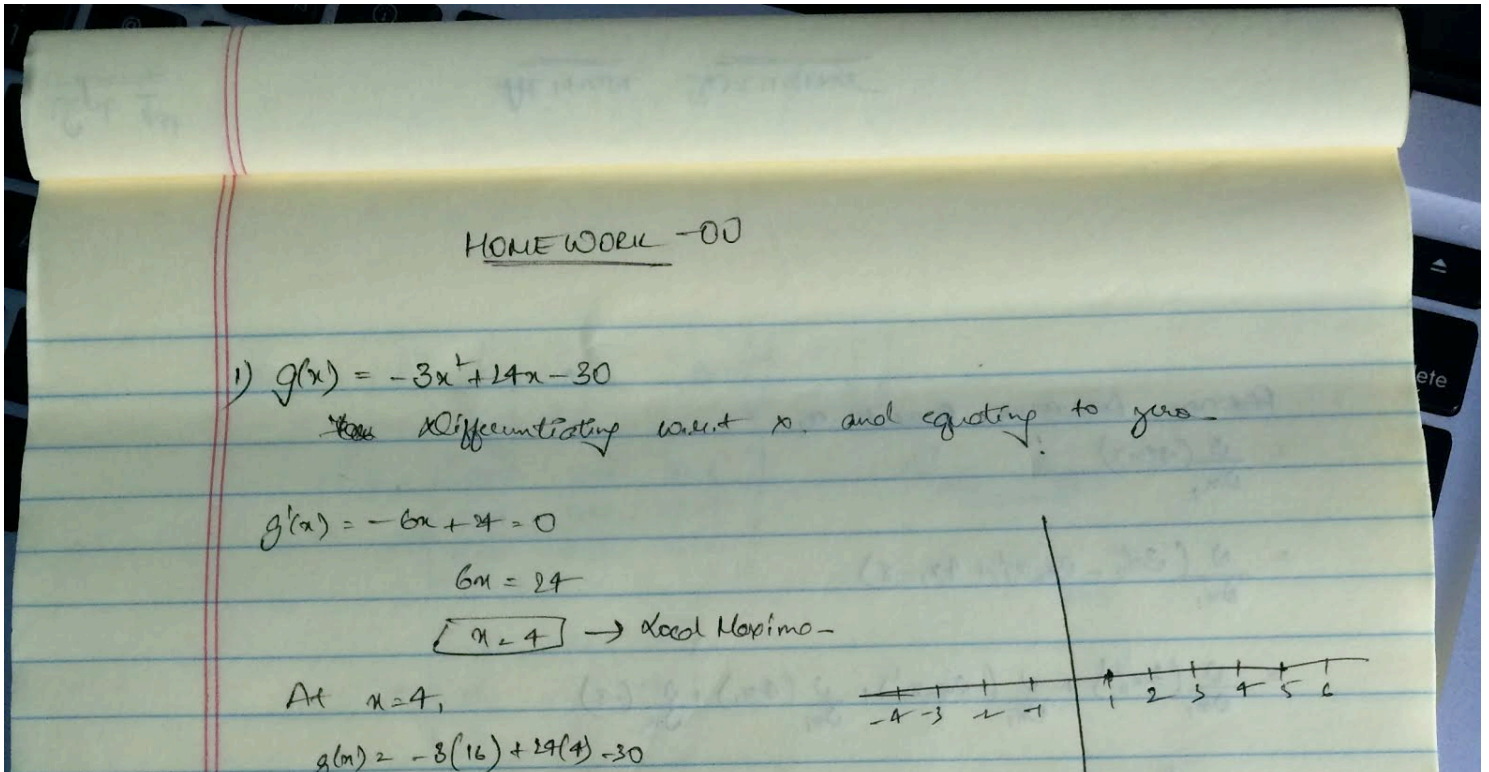 HOMEWORK -00
1) g(x) = -3x²+24x-30
Differentiating w.r.t x. and equating to zero.
g'(x) = -6x + 24 = 0
6x = 24
x = 4 → Local Maxima
At x=4,
-4 -3 -2 -1 1 2 3 4 5 6
g(x) = -3(16) + 24(4) -30
ete